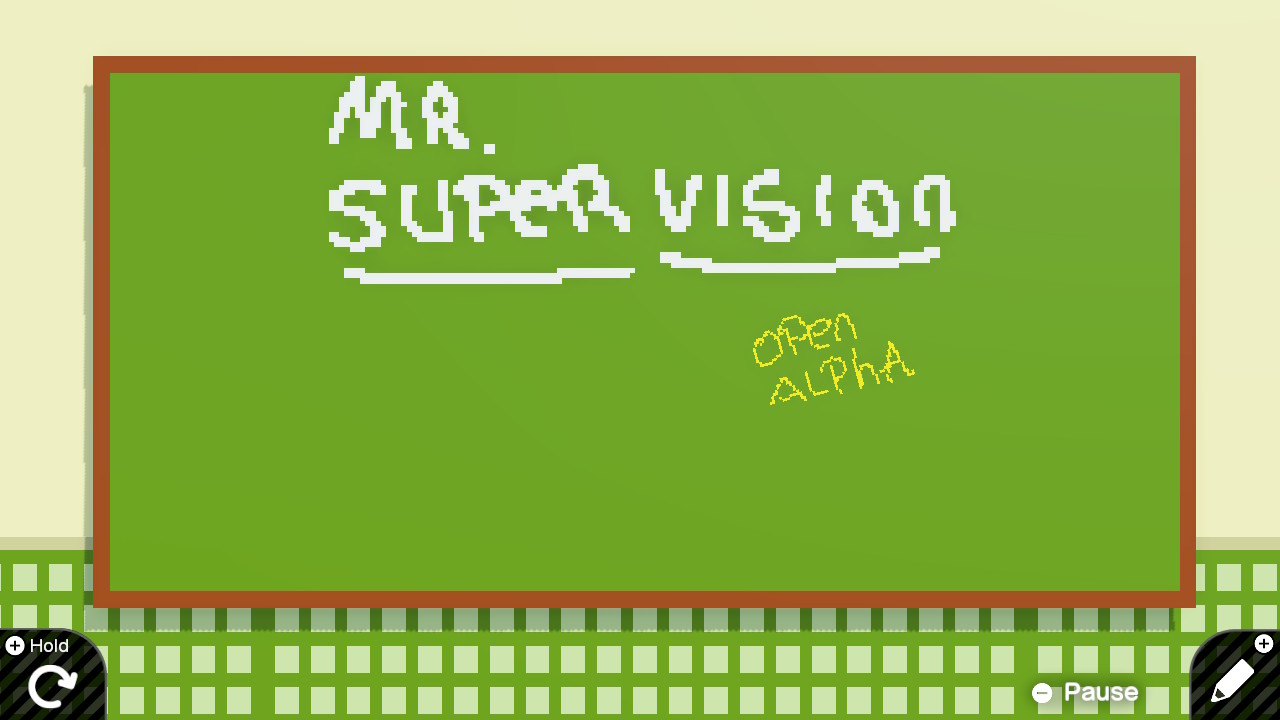 MR.
SUPER VISION
OPEN
ALPhA
Hold
Pause